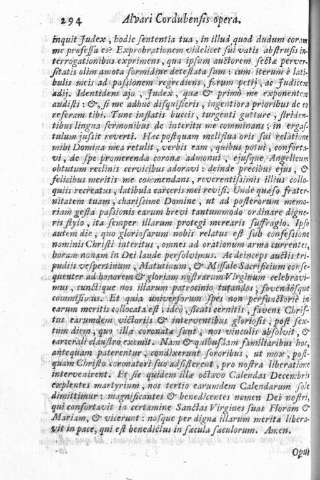 294 Alvari Cordubensis opera.
inquit Judex, hodie sententia tua, in illud quod dudum coram
me professa es. Exprobrationem videlicet sui vatis abstrusis in-
terrogationibus exprimens, qua ipsum auctorem sectæ perver-
sitatis olim amota formidine detestata sum: cum iterum è lati-
bulis meis ad passionem regrediens, forum petii, ac Judicem
adij. Identidem ajo, Judex, quæ & primò me exponente
audisti: &, si me adhuc disquisieris, ingentiora prioribus de te
referam tibi. Tunc inflatis buccis, turgenti gutture, striden-
tibus lingua sermonibus de interitu me comminans; in ergas-
tulum jussit reverti. Hæc postquam mellistua oris sui labellatio
mihi Domina mea retulit, verbis eam, quibus potui, conforta-
vi, de spe promerenda coronæ admonui, ejusque Angelicum
obtutum reclinis cervicibus adoravi: deinde precibus ejus, &
felicibus meritis me commendans, reverentissimis illius collo-
quiis recreatus, latibula carceris mei revisi. Unde quæso frater-
nitatem tuam, charissime Domine, ut ad posterorum memo-
riam gesta passionis earum brevi tantummodo ordinare digne-
ris stylo, ita semper illarum protegi merearis suffragio. Ipso
autem die, quo gloriosarum nobis relatus est sub confessione
nominis Christi interitus, omnes ad orationum arma currentes,
horam nonam in Dei laude persolvimus. Ac deinceps auctis tri-
pudiis vespertinum, Matutinum, & Missale Sacrificium conse-
quenter ad honorem & gloriam nostrarum Virginum celebravi-
mus, cunctique nos illarum patrocinio tutandos, fovendosque
commisimus. Et quia universorum spes non perfunctoriè in
earum meritis collocata est: ideo, sicuti cernitis, favens Chris-
tus earumdem victoriis & interventibus gloriosis, post sex-
tum diem, quo illæ coronatæ sunt, nos vinculis absolvit, &
carcerali claustro exemit. Nam & quibusdam familiaribus hoc,
antequam paterentur, condixerunt sororibus, ut mox, post-
quam Christo coronatori suo adsisterent, pro nostra liberatione
intervenirent. Et sic quidem illæ octavo Calendas Decembris
explentes martyrium, nos tertio earumdem Calendarum solui
dimittimur: magnificantes & benedicentes nomen Dei nostri,
qui confortavit in certamine Sanctas Virgines suas Floram &
Mariam, & vicerunt: nosque per dignа illarum merita libera-
vit in pace, qui est benedictus in sæcula sæculorum. Amen.
Opus